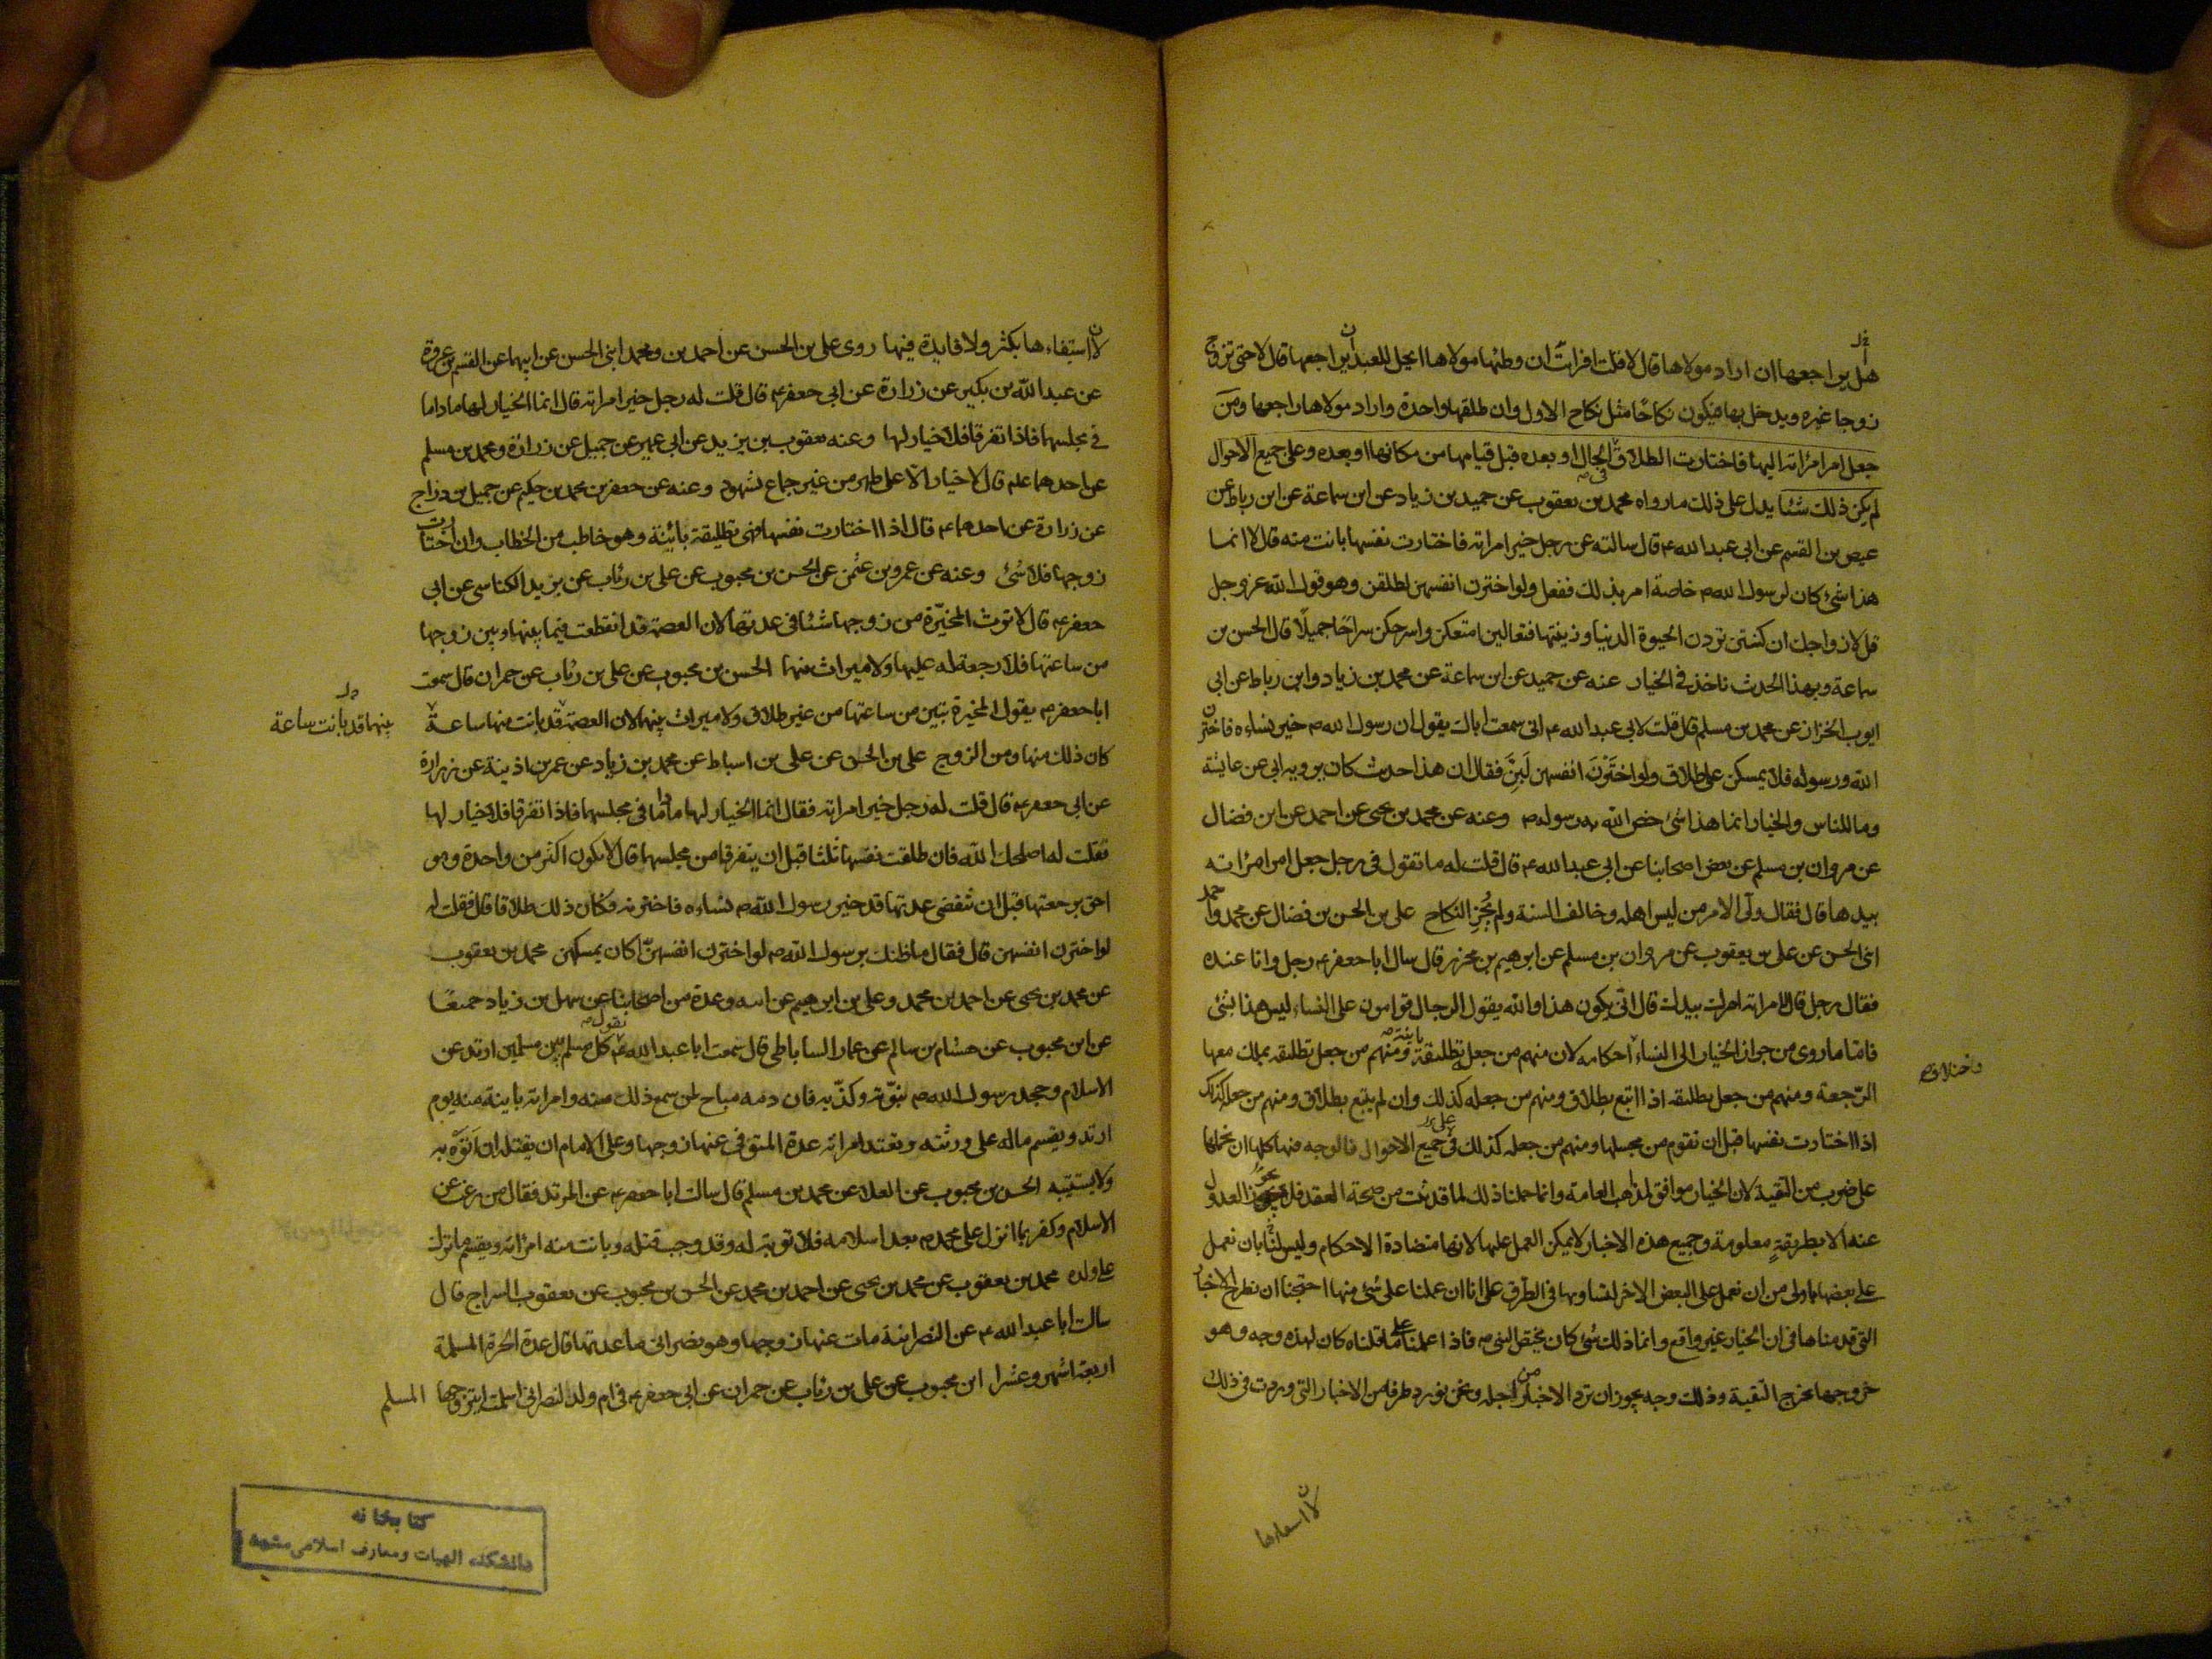 هل يراجعها ان اراد مولاها قال لا قلت افرايت ان وطئها مولاها ايحل للعبد ان يراجعها قال لا حتى تزوج
زوجا غيره ويدخل بها فيكون نكاحًا مثل نكاح الاول وان طلقها واحدة واراد مولاها راجعها ومن
جعل امر امرأته اليها فاختارت الطلاق في الحال او بعده قبل قيامها من مكانها او بعده وعلى جميع الاحوال
لم يكن ذلك شيئا يدل على ذلك ما رواه محمد بن يعقوب عن حميد بن زياد عن ابن سماعة عن ابن رباط عن
عيص بن القسم عن ابي عبد الله ع قال سالته عن رجل خير امراته فاختارت نفسها بانت منه قال لا انما
هذا شئ كان لرسول الله ص خاصة امر بذلك ففعل ولو اخترن انفسهن لطلقن وهو قول الله عز وجل
قل لازواجك ان كنتن تردن الحيوة الدنيا وزينتها فتعالين امتعكن واسرحكن سراحًا جميلًا قال الحسن بن
سماعة وبهذا الحديث ناخذ في الخيار عنه عن حميد عن ابن سماعة عن محمد بن زياد وابن رباط عن ابي
ايوب الخزاز عن محمد بن مسلم قال قلت لابي عبد الله ع اني سمعت اباك يقول ان رسول الله ص خير نساءه فاخترن
الله ورسوله فلم يمسكن على طلاق ولو اخترن انفسهن لبِنَّ فقال ان هذا حديث كان يرويه ابي عن عايشة
وما للناس والخيار انما هذا شئ خص الله به رسوله ص وعنه عن محمد بن يحيى عن احمد عن ابن فضال
عن مروان بن مسلم عن بعض اصحابنا عن ابي عبد الله ع قال قلت له ما تقول في رجل جعل امر امرأته
بيدها قال فقال ولّى الامر من ليس اهله وخالف السنة ولم يُجِزِ النكاح علي بن الحسن بن فضال عن محمد واحمد
ابني الحسن عن علي بن يعقوب عن مروان بن مسلم عن ابرهيم بن محرز قال سال ابا جعفر ع رجل وانا عنده
فقال رجل قال لامراته امرك بيدك قال انّى يكون هذا والله يقول الرجال قوامون على النساء ليس هذا بشئ
فاما ما روى من جواز الخيار الى النساء احكامه لان منهم من جعل تطليقة باينة ومنهم من جعل تطليقة يملك معها
واختلاف
الرّجعة ومنهم من جعل تطليقة اذا اتبع بطلاق ومنهم من جعله كذلك وان لم يتبع بطلاق ومنهم من جعل كذلك
اذا اختارت نفسها قبل ان تقوم من مجلسها ومنهم من جعله كذلك على جميع الاحوال فالوجه فيها كلها ان نحملها
على ضرب من التقية لان الخيار موافق لمذاهب العامة وانما حملنا ذلك لما قد ثبت من صحة العقد فلا يجوز العدول
عنه الا بطريقةٍ معلومة وجميع هذه الاخبار لا يمكن العمل عليها لانها متضادة الاحكام وليس لنا بان نعمل
على بعضها باولى من ان نعمل على البعض الاخر لتساويها في الطرق على انا ان عملنا على شئ منها احتجنا ان نطرح الاخبار
التي قدمناها في ان الخيار غير واقع وانما ذلك شئ كان يختص النبي ص فاذا عملنا على ما قلناه كان لهذه وجه وهو
خروجها مخرج التقية وذلك وجه يجوز ان ترد الاخبار من اجله ونحن نورد طرفا من الاخبار التي وردت في ذلك
لان استيفاءها يكثر ولا فايدة فيها روى علي بن الحسن عن احمد بن ومحمد ابني الحسن عن ابيهما عن القسم بن عروة
عن عبد الله بن بكير عن زرارة عن ابي جعفر ع قال قلت له رجل خير امراته قال انما الخيار لهما ما داما
في مجلسهما فاذا تفرقا فلا خيار لها وعنه يعقوب بن يزيد عن ابي عمير عن جميل عن زرارة ومحمد بن مسلم
عن احدهما ع قال لا خيار الا على طهر من غير جماع بشهود وعنه عن جعفر بن محمد بن حكيم عن جميل بن دراج
عن زرارة عن احدهما ع قال اذا اختارت نفسها فهي تطليقة بائينة وهو خاطب من الخطاب وان اختارت
زوجها فلا شئ وعنه عن عمرو بن عثمن عن الحسن بن محبوب عن علي بن رئاب عن يزيد الكناسي عن ابي
جعفر ع قال لا تورث المخيّرة من زوجها شئا في عدتها لان العصمة قد انقطعت فيما بينها وبين زوجها
من ساعتها فلا رجعة له عليها ولا ميراث بينهما الحسن بن محبوب عن علي بن رئاب عن حمران قال سمعت
ابا جعفر ع يقول المخيرة تبين من ساعتها من غير طلاق ولا ميراث بينهما لان العصمة قد بانت منها ساعة
بينهما قد بانت ساعة
كان ذلك منها ومن الزوج علي بن الحسن عن علي بن اسباط عن محمد بن زياد عن عمر بن اذينة عن زرارة
عن ابي جعفر ع قال قلت له رجل خير امراته فقال انما الخيار لهما ما داما في مجلسهما فاذا تفرقا فلا خيار لها
فقلت له اصلحك الله فان طلقت نفسها ثلثا قبل ان يتفرقا من مجلسهما قال لا يكون اكثر من واحدة وهو
احق برجعتها قبل ان تنقضى عدتها قد خير رسول الله ص نساءه فاخترنه فكان ذلك طلاقا قال فقلت له
لو اخترن انفسهن قال فقال ما ظنك برسول الله ص لو اخترن انفسهنّ اكان يمسكهن محمد بن يعقوب
عن محمد بن يحيى عن احمد بن محمد وعلي بن ابرهيم عن ابيه وعدة من اصحابنا عن سهل بن زياد جميعًا
عن ابن محبوب عن هشام بن سالم عن عمار الساباطي قال سمعت ابا عبد الله ع يقول كل مسلم بين مسلمين ارتد عن
الاسلام وجحد رسول الله ص نبوّته وكذّبه فان دمه مباح لمن سمع ذلك منه وامراته باينة منه يوم
ارتد ويقسم ماله على ورثته وتعتد امراته عدة المتوفى عنها زوجها وعلى الامام ان يقتله ان اتوه به
ولا يستتيبه الحسن بن محبوب عن العلا عن محمد بن مسلم قال سالت ابا جعفر ع عن المرتد فقال من رغب عن
الاسلام وكفر بما انزل على محمد ص بعد اسلامه فلا توبة له وقد وجب قتله وبانت منه امراته ويقسم ما ترك
على ولده محمد بن يعقوب عن محمد بن يحيى عن احمد بن محمد عن الحسن بن محبوب عن يعقوب السراج قال
سالت ابا عبد الله ع عن النصرانية مات عنها زوجها وهو نصراني ما عدتها قال عدة الحرة المسلمة
اربعة اشهر وعشرا ابن محبوب عن علي بن رئاب عن حمران عن ابي جعفر ع في ام ولد لنصراني اسلمت ايتزوجها المسلم
كتابخانه
دانشکده الهيات ومعارف اسلامى مشهد